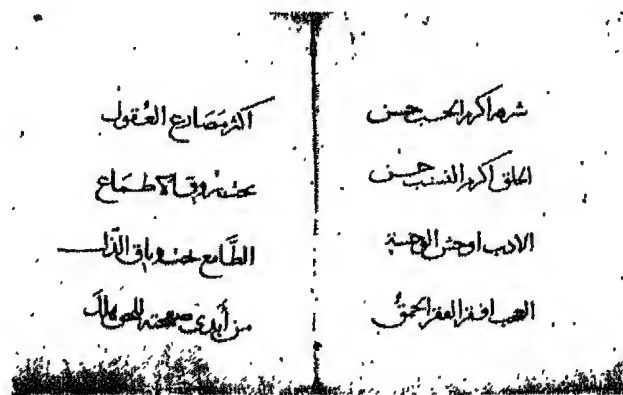 شره اكرم الحسب حسن
الخلق اكرم النسب حسن
الادب اوحش الوحشة
العجب افقر الفقر الحمقُ
اكثر مَصَارع العُقول
تحت بروق الاطماع
الطَّامع في وثاق الذّل
من أَبدى صفحته للحق هلكَ